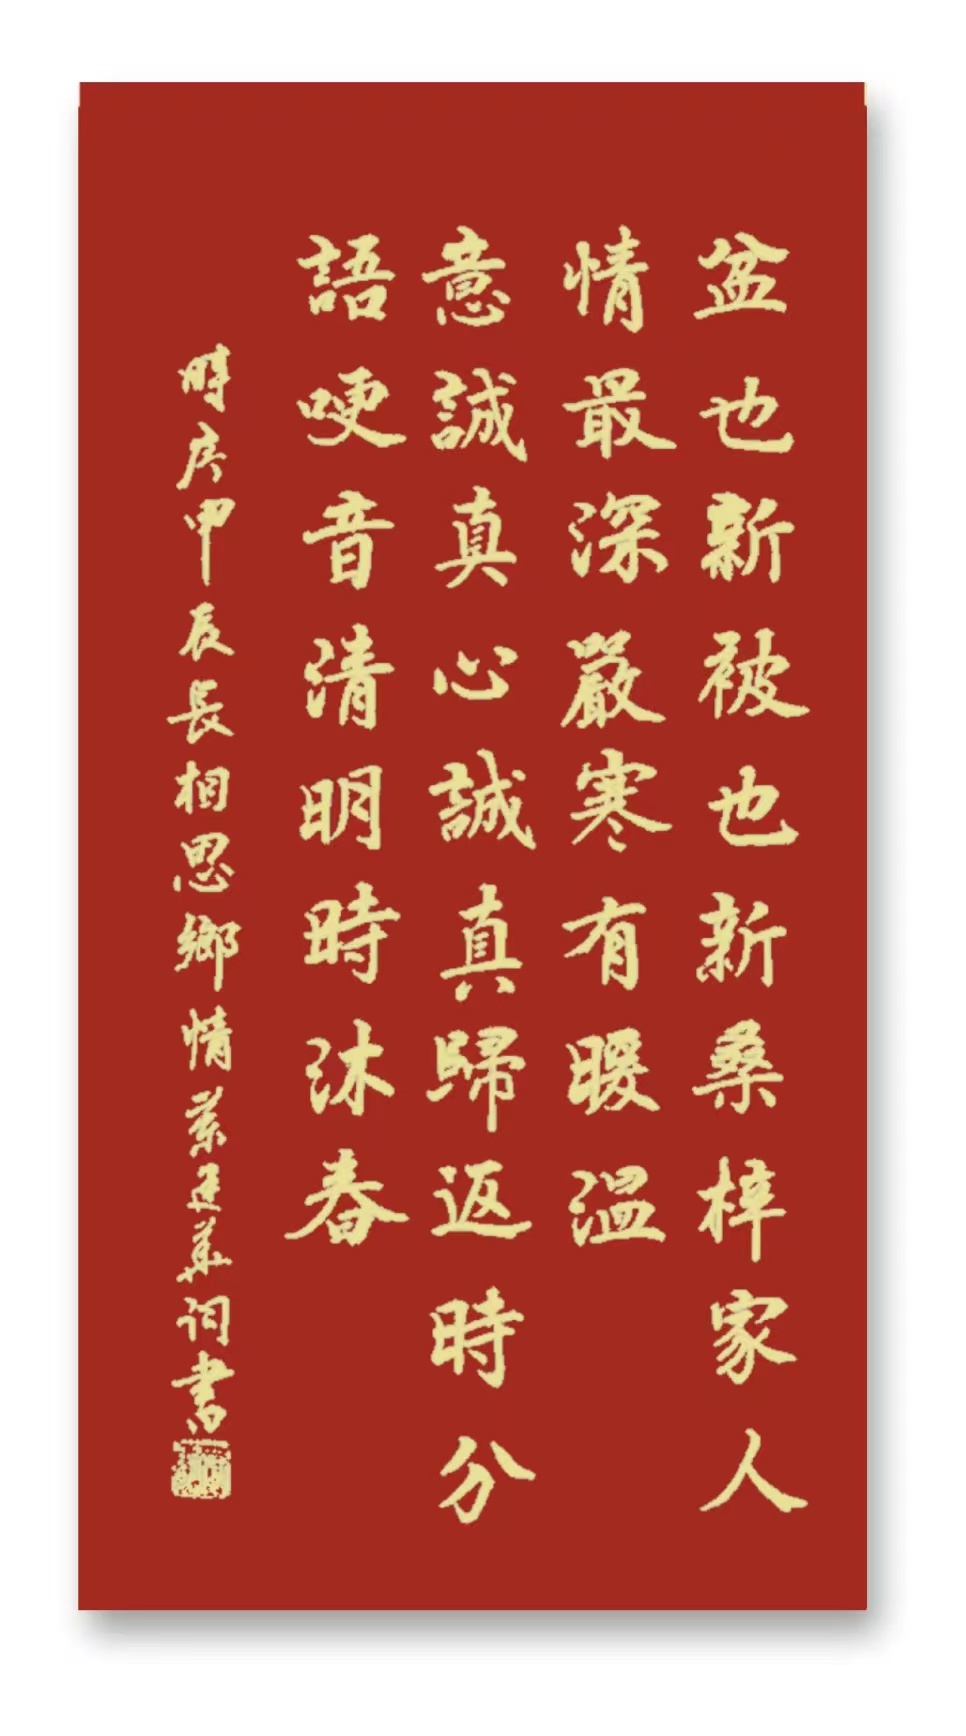 盆也新被也新桑梓家人
情最深嚴寒有暖溫
意誠真心誠真歸返時分
語哽音清明時沐春
時序甲辰長相思鄉情蔡廷華詞書